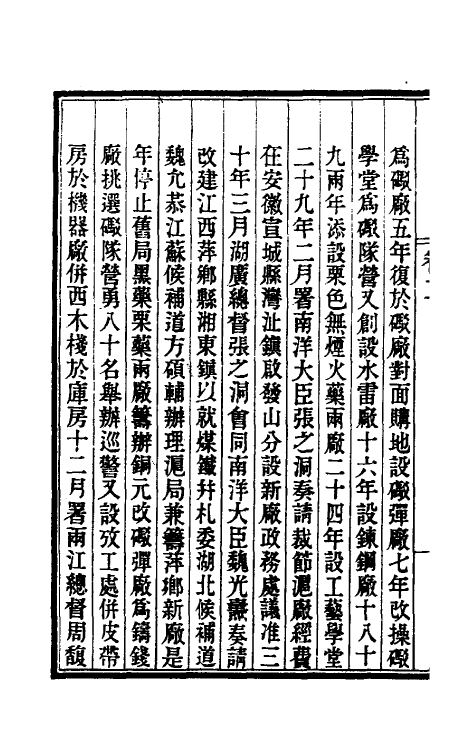 爲礮厰五年復於礮厰對面購地設礮彈厰七年改操礮
學堂爲礮隊營又創設水雷厰十六年設鍊鋼厰十八十
九兩年添設栗色無煙火藥兩厰二十四年設工藝學堂
二十九年二月署南洋大臣張之洞奏請裁節滬厰經費
在安徽宣城縣灣沚鎭啟發山分設新厰政務處議准三
十年三月湖廣總督張之洞會同南洋大臣魏光燾奏請
改建江西萍鄕縣湘東鎭以就煤鐵幷札委湖北候補道
魏允恭江蘇候補道方碩輔辦理滬局兼籌萍鄕新厰是
年停止舊局黑藥栗藥兩厰籌辦銅元改礮彈厰爲鑄錢
厰挑選礮隊營勇八十名舉辦巡警又設攷工處併皮帶
房於機器厰併西木棧於庫房十二月署兩江總督周馥